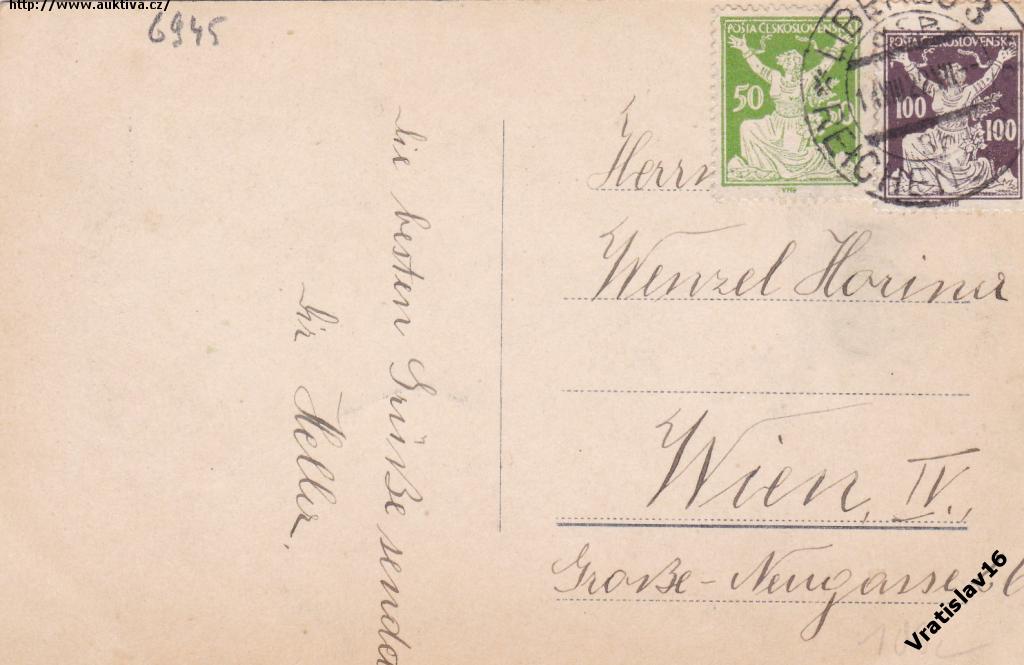 http://www.auktiva.cz/
6945
POŠTA ČESKOSLOVENSKÁ
50 50
POŠTA ČESKOSLOVENSKÁ
100 100
LIBEREC 3
REICHEN
Die besten Grüße sendet
Herrn
Wenzel Horina
Wien, IV.
Große-Neugasse
Vratislav16